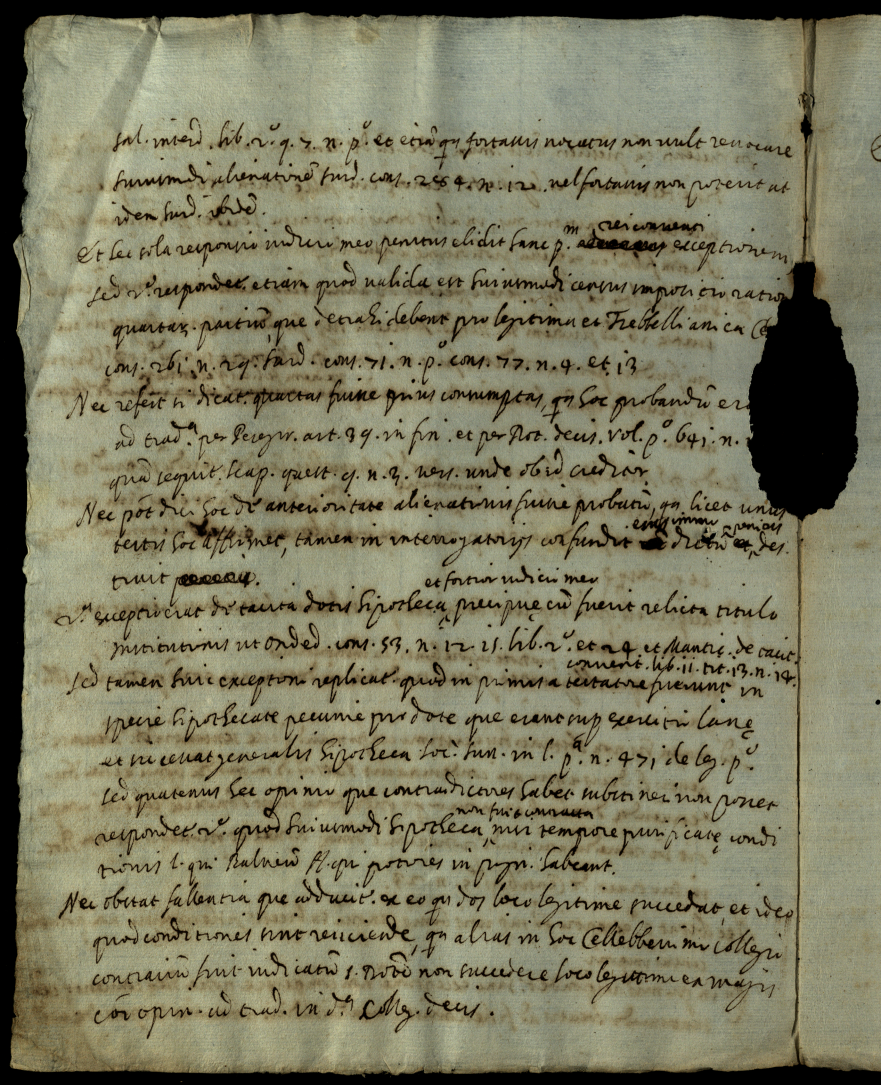 sal. interd. lib. 2.º q. 7. n. pº. et etiã qñ fortassis vocatus non vult revocare
huiusmodi alienationẽ surd. cons. 284. n. 12. vel fortassis non poterit ut
idem surd. ibidẽ.
Et hec sola responsio iudicio meo penitus elidit hanc p.m rei conventi exceptionem
sed 2.º respondet. etiam quod valida est huiusmodi census impositio ratione
quartar. partiũ que detrahi debent pro legitima et Trebellianica
cons. 261. n. 29. surd. cons. 71. n. pº. cons. 77. n. 4. et 13
Nec refert si dicat. quartas fuisse prius consumptas, qã hoc probandũ
ad trad.ª per Peregr. art. 39. in fin. et per Rot. decis. vol. pº. 641. n.
quã sequit. scap. quest. 9. n. 3. vers. unde obid creditor
Nec põt dici hoc de anterioritate alienationis fuisse probatũ, qã licet unus
testis hoc affirmet, tamen in interrogatorijs confundit eiusdem dictũ et, penitus des
truit
2.ª exceptio erat de tacita dotis hipotheca, et fortior iudicio meo precipuę cũ fuerit relicta titulo
institutionis ut Onded. cons. 53. n. 12. 15. lib. 2.º et 24. et Mantic. de tacit.
convent. lib. 11. tit. 13. n. 14.
Sed tamen huic exceptioni replicat. quod in primis a testatore fuerunt in
specie hipothecate pecunie pro dote que erant sup exercitio lanę
et sic cessat generalis hipotheca soc. sun. in l. p.ª n. 471 de leg. pº.
sed quatenus hec opinio que contradictores habet substineri non posset
respondet. 2.º quod huiusmodi hipotheca, non fuit contracta nisi tempore purificatę condi
tionis l. qui balneũ ff. qui potiores in pign. habeant.
Nec obstat fallentia que adducit. ex eo qã dos loco legitime succedat, et ideo
quod conditiones sint reiiciende, qã alias in hoc Cellebberrimo collegio
contrariũ fuit iudicatũ s. dotẽ non succedere loco legitime ex magis
cõi opin. ad trad. in d.ª Colleg. decis.